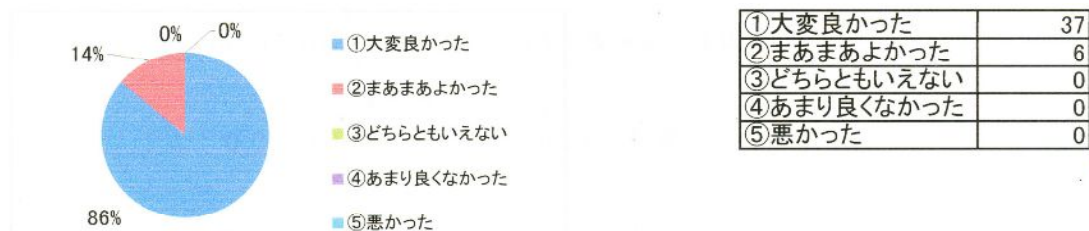 0%
0%
14%
86%
①大変良かった
②まあまあよかった
③どちらともいえない
④あまり良くなかった
⑤悪かった
①大変良かった 37
②まあまあよかった 6
③どちらともいえない 0
④あまり良くなかった 0
⑤悪かった 0